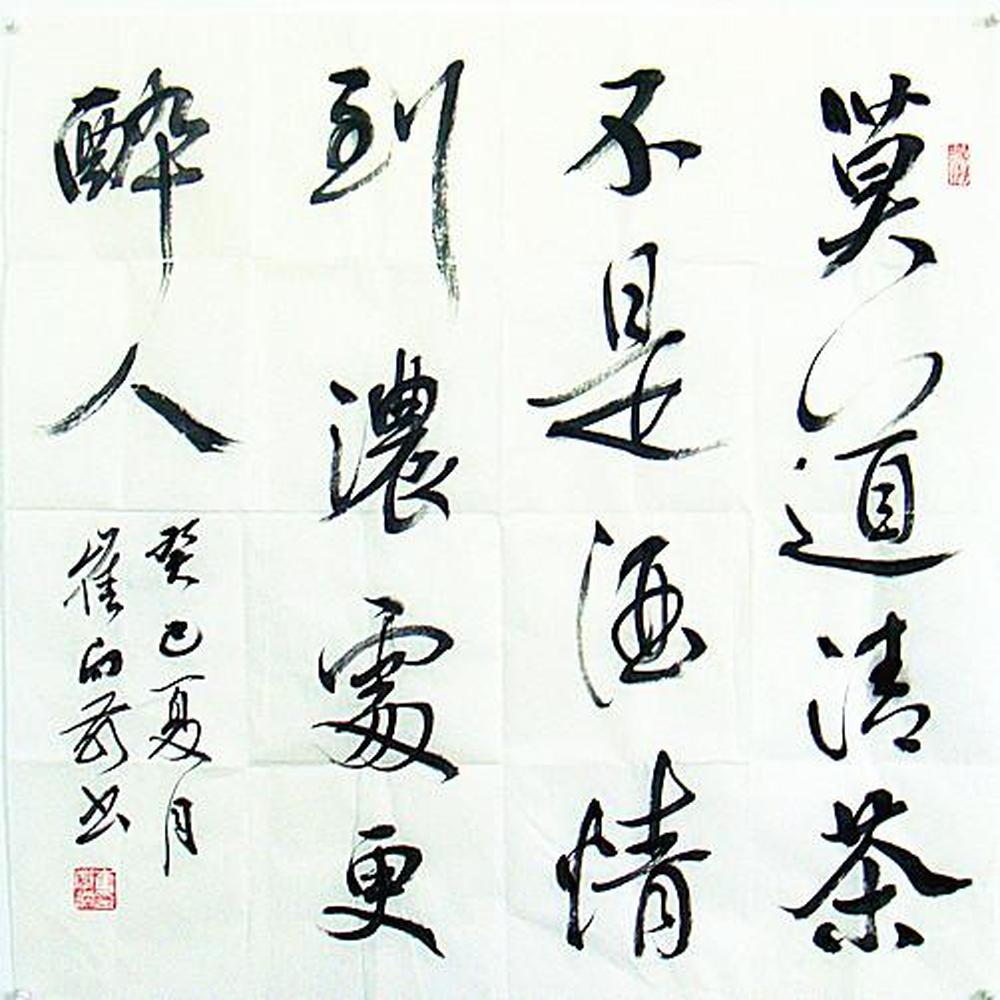 莫道清茶
不是酒情
到濃處更
醉人
癸巳夏月
崔向前书